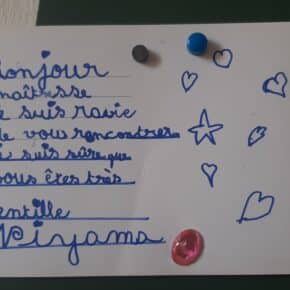 onjour
maîtresse
e suis ravie
de vous rencontrer
e suis sûre que
vous êtes très
entille
Kiyama